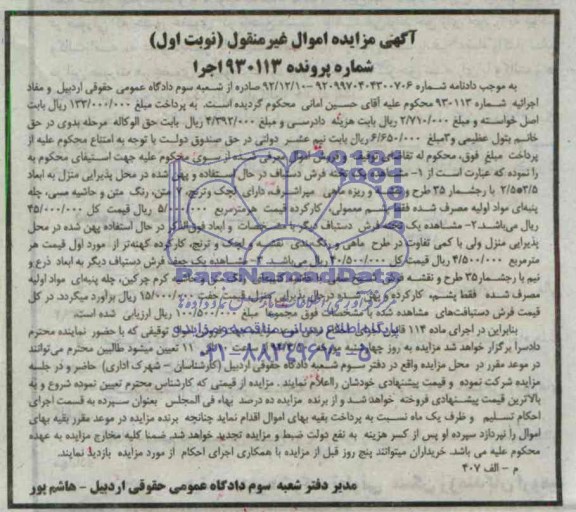 آگهی مزایده اموال غیرمنقول (نوبت اول)
شماره پرونده ۹۳۰۱۱۳ اجرا
به موجب دادنامه شماره ۹۲۰۹۹۷۰۴۰۴۳۰۰۷۰۶ - ۹۲/۱۲/۱۰ صادره از شعبه سوم دادگاه عمومی حقوقی اردبیل و مفاد
اجرائیه شماره ۹۳۰۱۱۳ محکوم علیه آقای حسین امانی محکوم گردیده است. به پرداخت مبلغ ۱۳۳/۰۰۰/۰۰۰ ریال بابت
اصل خواسته و مبلغ ۲/۷۱۰/۰۰۰ بابت هزینه دادرسی و مبلغ ۴/۳۹۲/۰۰۰ ریال بابت حق الوکاله مرحله بدوی در حق
خانم بتول عظیمی و ۳مبلغ ۶/۶۵۰/۰۰۰ ریال بابت نیم عشر دولتی در حق صندوق دولت با توجه به امتناع محکوم علیه از
پرداخت مبلغ فوق، محکوم له تقاضای محکوم علیه جهت استیفای محکوم به
را نموده که عبارت است از ۱- فرش دستباف در حال استفاده و پهن شده در محل پذیرایی منزل به ابعاد
۲/۵*۳/۵ با رجشمار ۳۵ طرح و نقشه و ریزه ماهی دارای لچک و ترنج، متن، رنگ متن و حاشیه مسی، چله
پنبه‌ای مواد اولیه مصرف شده فقط پشم معمولی، کارکرده قیمت هر مترمربع ریال قیمت کل ۴۵/۰۰۰/۰۰۰
ریال می‌باشد. ۲- مشاهده یک فرش دستباف دیگر با مشخصات و ابعاد فوق‌الذکر در حال استفاده پهن شده در محل
پذیرایی منزل ولی با کمی تفاوت در طرح ماهی و رنگ‌بندی نقشه و لچک و ترنج، کارکرده کهنه‌تر از مورد اول قیمت هر
مترمربع ۴/۵۰۰/۰۰۰ ریال قیمت کل ۴۰/۵۰۰/۰۰۰ ریال می‌باشد. ۳- مشاهده یک جفت فرش دستباف دیگر به ابعاد ذرع و
نیم با رجشمار ۳۵ طرح و نقشه کرم چرکین، چله پنبه‌ای مواد اولیه
مصرف شده فقط پشم، کارکرده در حال پذیرایی منزل ۱۵/۰۰۰/۰۰۰ ریال برآورد میگردد. در کل
قیمت فرش دستبافت‌های مشاهده شده با مشخصات فوق مجموعا مبلغ ۱۰۰/۵۰۰/۰۰۰ ریال ارزیابی شده است.
بنابراین در اجرای ماده ۱۱۴ قانون توقیفی که با حضور نماینده محترم
دادسرا برگزار خواهد شد مزایده به روز چهارشنبه ۱۱ تعیین میشود طالبین محترم می‌توانند
در موعد مقرر در محل مزایده واقع در دفتر شعبه سوم دادگاه حقوقی اردبیل (کارشناسان - شهرک اداری) حاضر و در جلسه
مزایده شرکت نموده و قیمت پیشنهادی خودشان را اعلام نمایند. مزایده از قیمتی که کارشناس محترم تعیین نموده شروع و به
بالاترین قیمت پیشنهادی فروخته خواهد شد و از برنده مزایده ده درصد بهاء فی المجلس بعنوان سپرده به قسمت اجرای
احکام تسلیم و ظرف یک ماه نسبت به پرداخت بقیه بهای اموال اقدام نماید چنانچه برنده مزایده در موعد مقرر بقیه بهای
اموال را نپردازد سپرده او پس از کسر هزینه به نفع دولت ضبط و مزایده تجدید خواهد شد. ضمنا کلیه مخارج مزایده به عهده
محکوم علیه می باشد. خریداران میتوانند پنج روز قبل از مزایده با همکاری اجرای احکام از مورد مزایده بازدید نمایند.
م - الف ۴۰۷
مدیر دفتر شعبه سوم دادگاه عمومی حقوقی اردبیل - هاشم پور
ParsNamadData
پایگاه اطلاع رسانی مناقصه و مزایده
۰۲۱-۸۸۳۴۹۶۷۰-۵